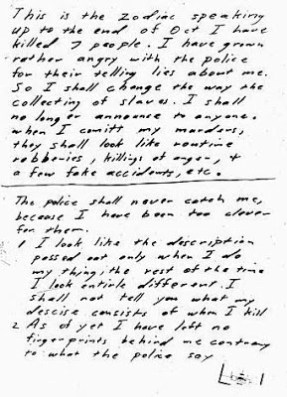 This is the Zodiac speaking
up to the end of Oct I have
killed 7 people. I have grown
rather angry with the police
for their telling lies about me.
So I shall change the way the
collecting of slaves. I shall
no longer announce to anyone.
when I comitt my murders,
they shall look like routine
robberies, killings of anger, +
a few fake accidents, etc.
The police shall never catch me,
because I have been too clever
for them.
1 I look like the description
passed out only when I do
my thing, the rest of the time
I look entirle different. I
shall not tell you what my
descise consists of when I kill
2 As of yet I have left no
fingerprints behind me contrary
to what the police say